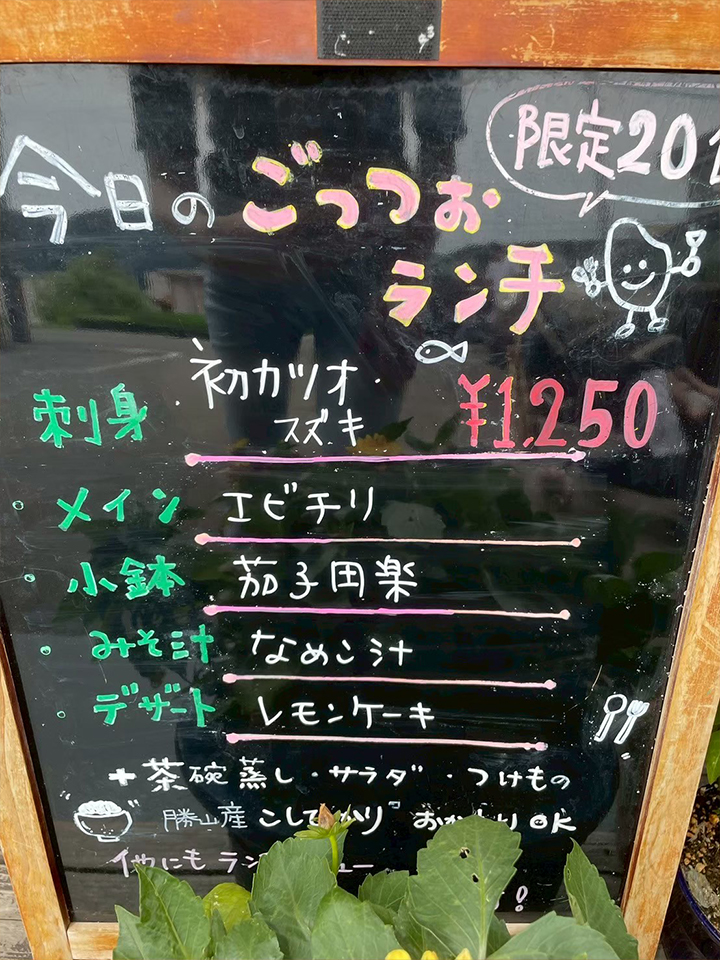 限定20
今日の ごっつぉ
ランチ
刺身 初カツオ
スズキ ¥1,250
・メイン エビチリ
・小鉢 茄子田楽
・みそ汁 なめこ汁
・デザート レモンケーキ
+茶碗蒸し・サラダ・つけもの
勝山産 OK
他にも
!